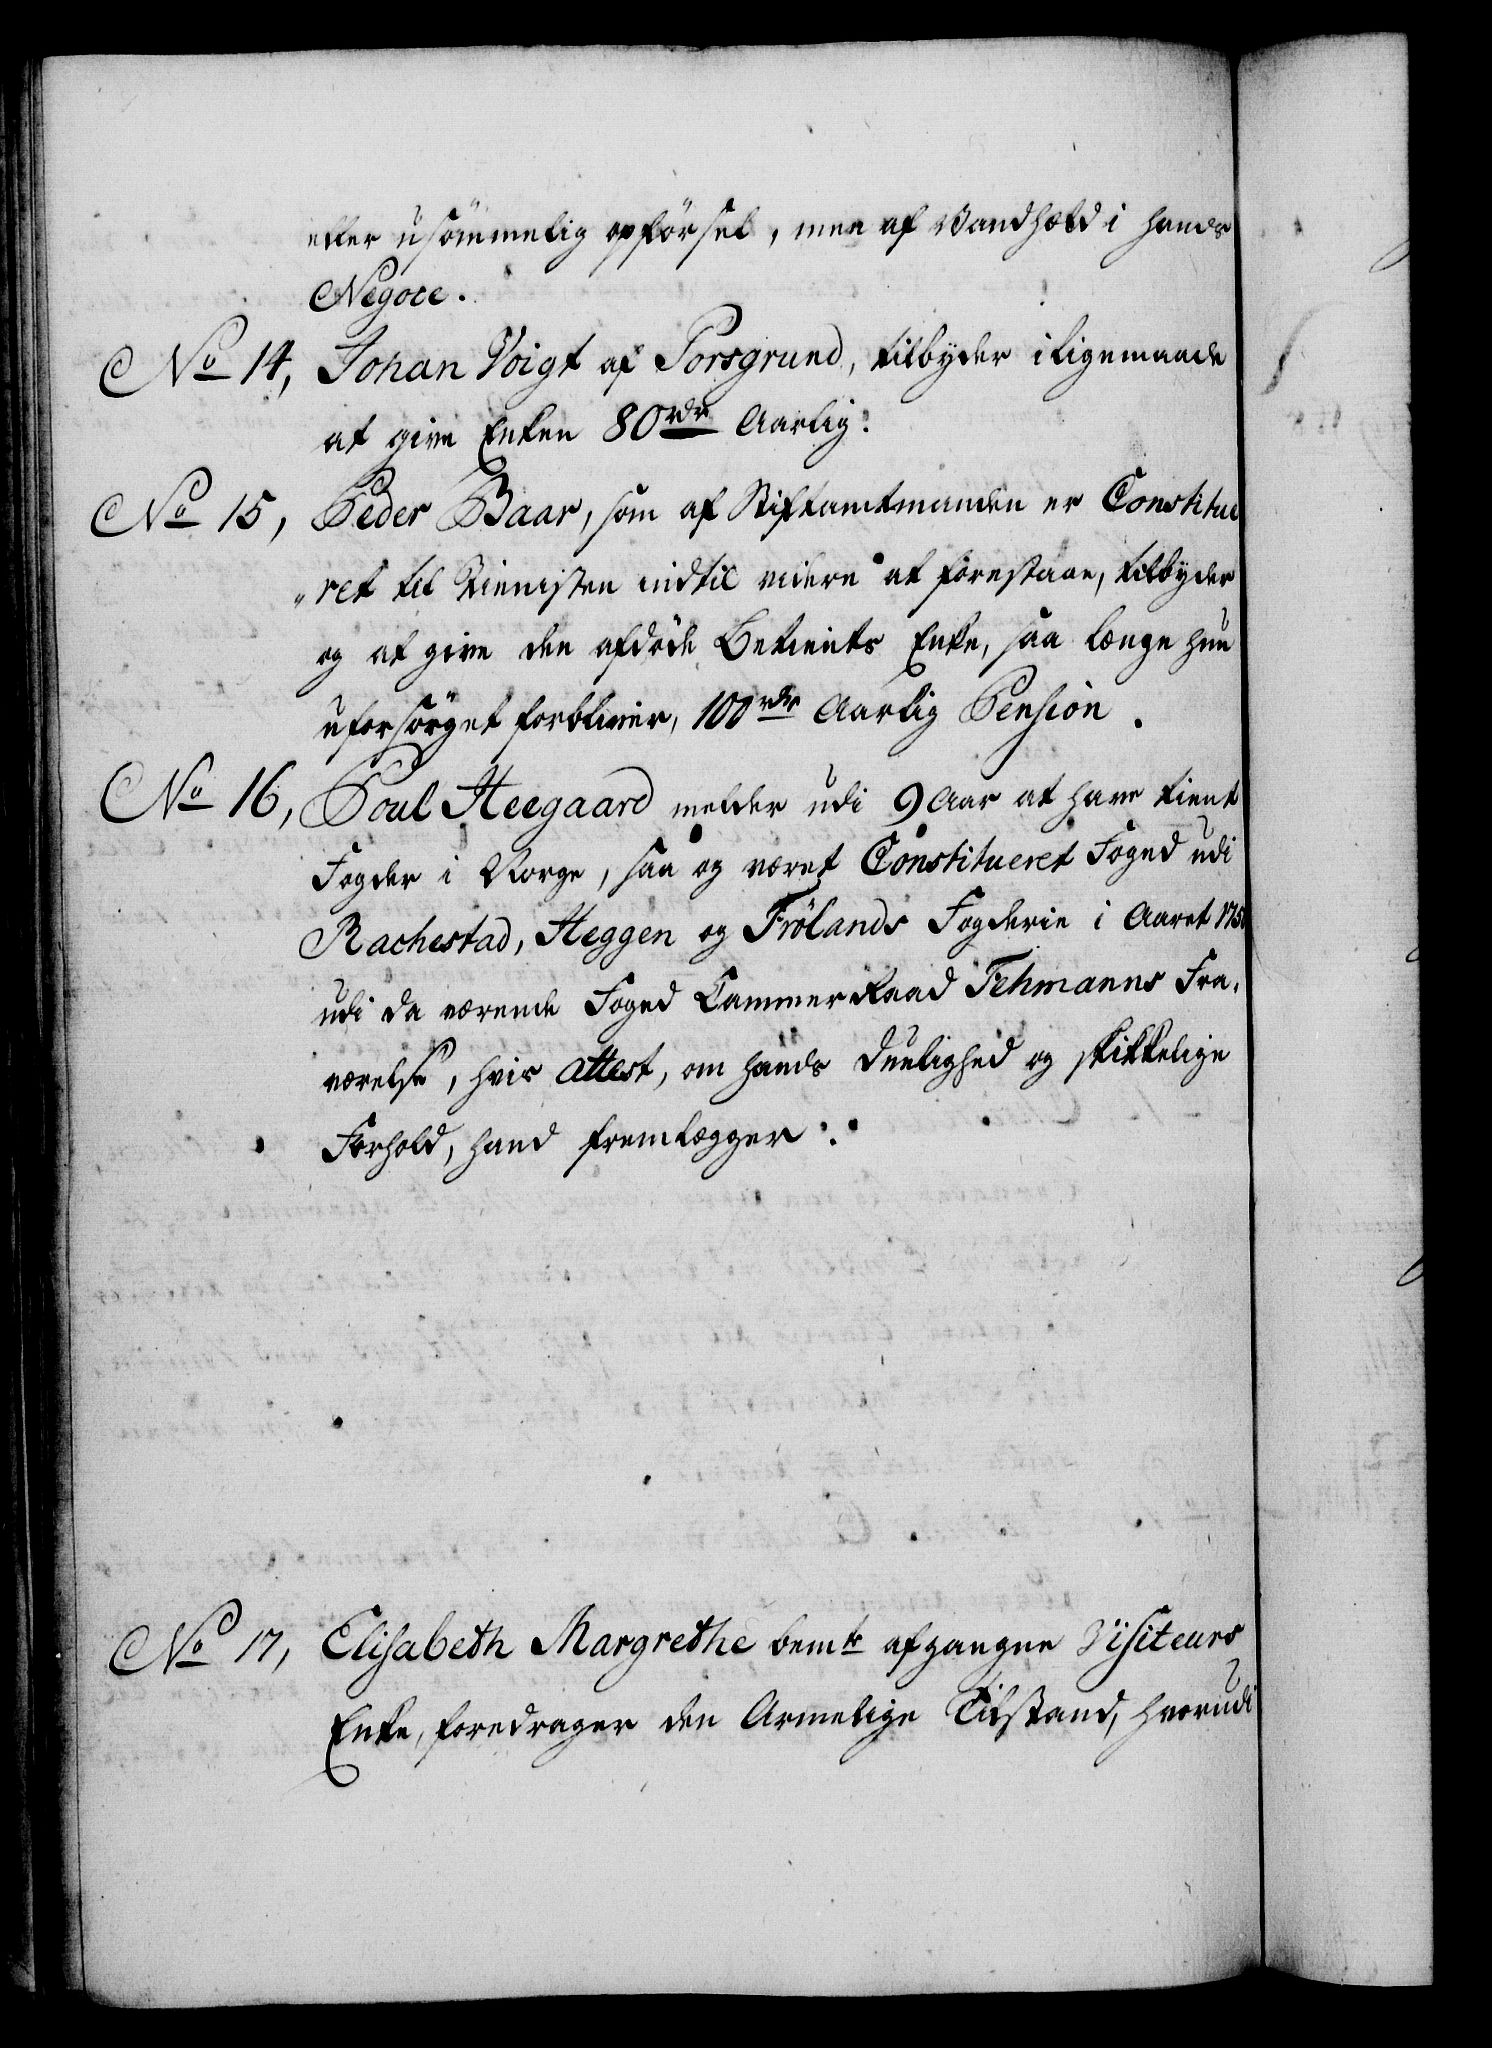 eller usömmelig opförsel, men af Vanheld i hands
Negoce.
No 14, Johan Voigt af Porsgrund, tilbyder iligemaade
at give Enken 80 rdr Aarlig.
No 15, Peder Baar, som af Stiftamtmanden er Constitue
"ret til Tienisten indtil videre at forestaae, tilbyder
og at give den afdöde Betients Enke, saa længe hun
uforsörget forbliver, 100 rdr Aarlig Pension.
No 16, Poul Heegaard melder udi 9 Aar at have tient
Fogder i Norge, saa og været Constitueret Foged udi
Rachestad, Heggen og Frölands Fogderie i Aaret 175
udi da værende Foged Cammer Raad Tehmanns Fra,
værelse, hvis attest, om hands Duelighed og skikkelige
Forhold, hand fremlægger.
No 17, Elisabeth Margrethe bemte afgangne Visiteurs
Enke, foredrager den Armelige Tilstand, hvorudi